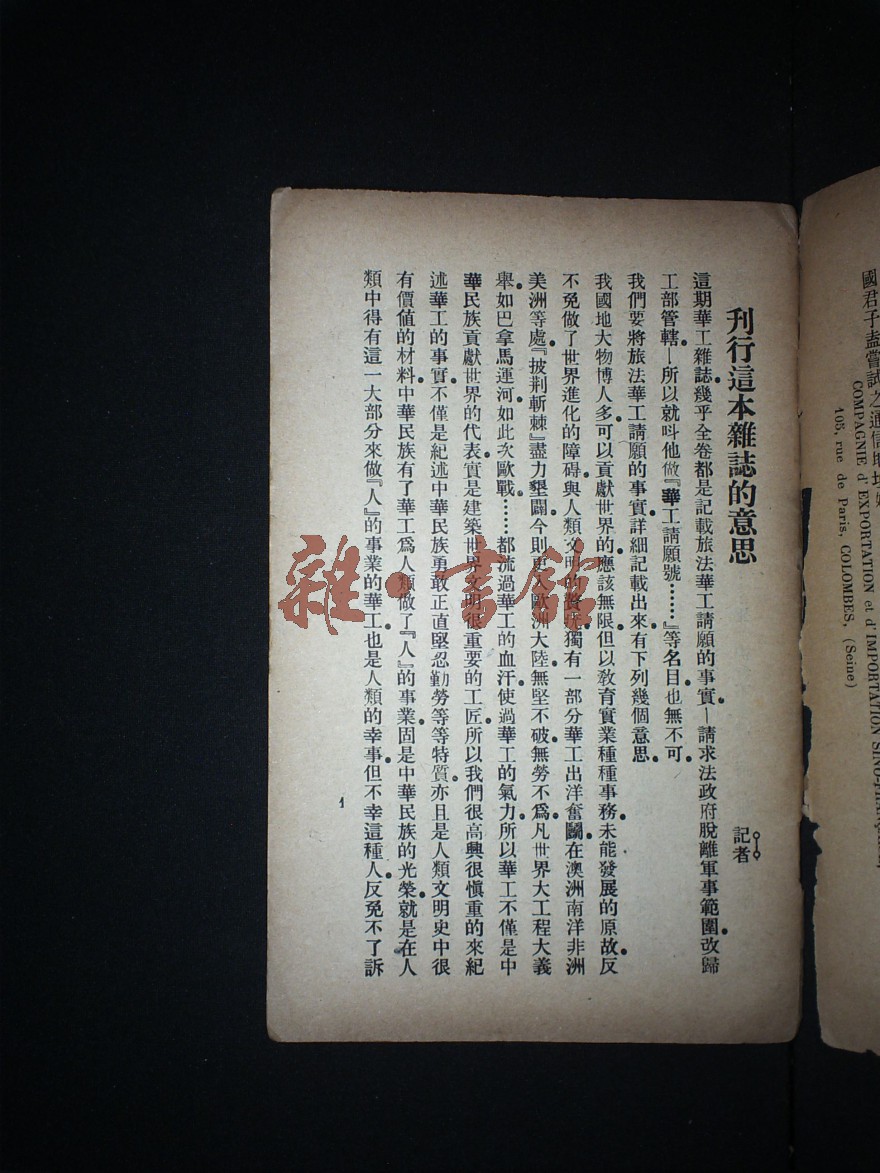 國君子盍嘗試之通信地址如
COMPAGNIE d' EXPORTATION et d' IMPORTATION SINO-FRANÇAISE,
105, rue de Paris, COLOMBES, (Seine)
刊行這本雜誌的意思
記者
這期華工雜誌幾乎全卷都是記載旅法華工請願的事實—請求法政府脫離軍事範圍改歸
工部管轄—所以就呌他做『華工請願號……』等名目也無不可
我們要將旅法華工請願的事實詳細記載出來有下列幾個意思
我國地大物博人多可以貢獻世界的應該無限但以敎育實業種種事務未能發展的原故反
不免做了世界進化的障碍與人類文明的獨有一部分華工出洋奮鬭在澳洲南洋非洲
美洲等處『披荆斬棘』盡力墾闢今則更入歐洲大陸無堅不破無勞不爲凡世界大工程大義
舉如巴拿馬運河如此次歐戰……都流過華工的血汗使過華工的氣力所以華工不僅是中
華民族貢獻世界的代表實是建築世界文明很重要的工匠所以我們很高興很愼重的來紀
述華工的事實不僅是紀述中華民族勇敢正直堅忍勤勞等等特質亦且是人類文明史中很
有價値的材料中華民族有了華工爲人類做了『人』的事業固是中華民族的光榮就是在人
類中得有這一大部分來做『人』的事業的華工也是人類的幸事但不幸這種人反免不了訴
1
雜·書館